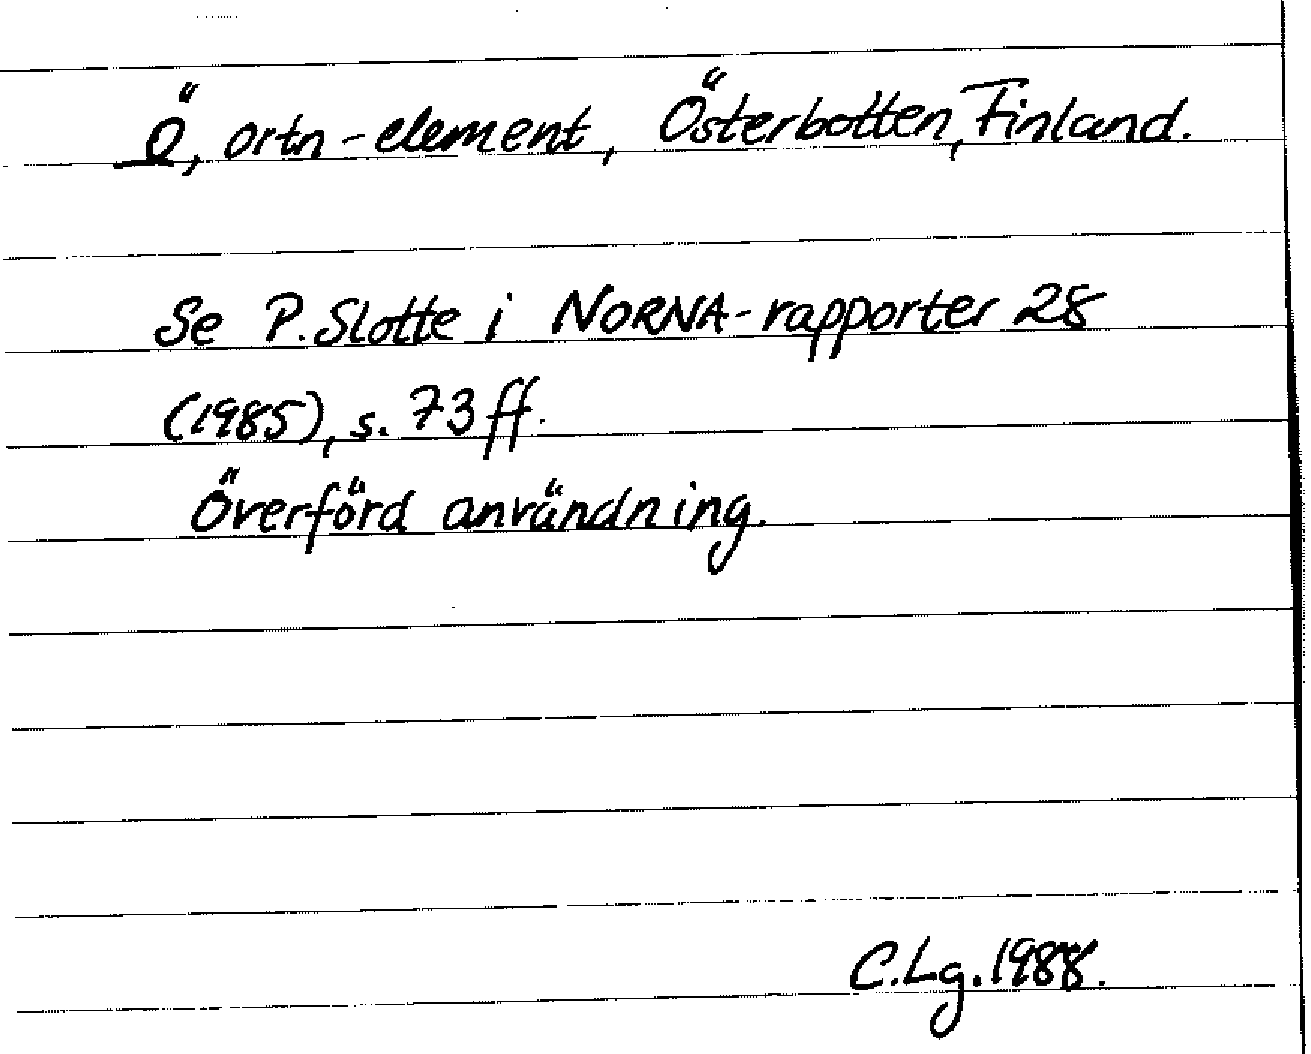 Ö, ortn-element, Österbotten, Finland.
Se P. Slotte i NORNA-rapporter 28
(1985), s. 73 ff.
Överförd användning.
C.Lg. 1988.